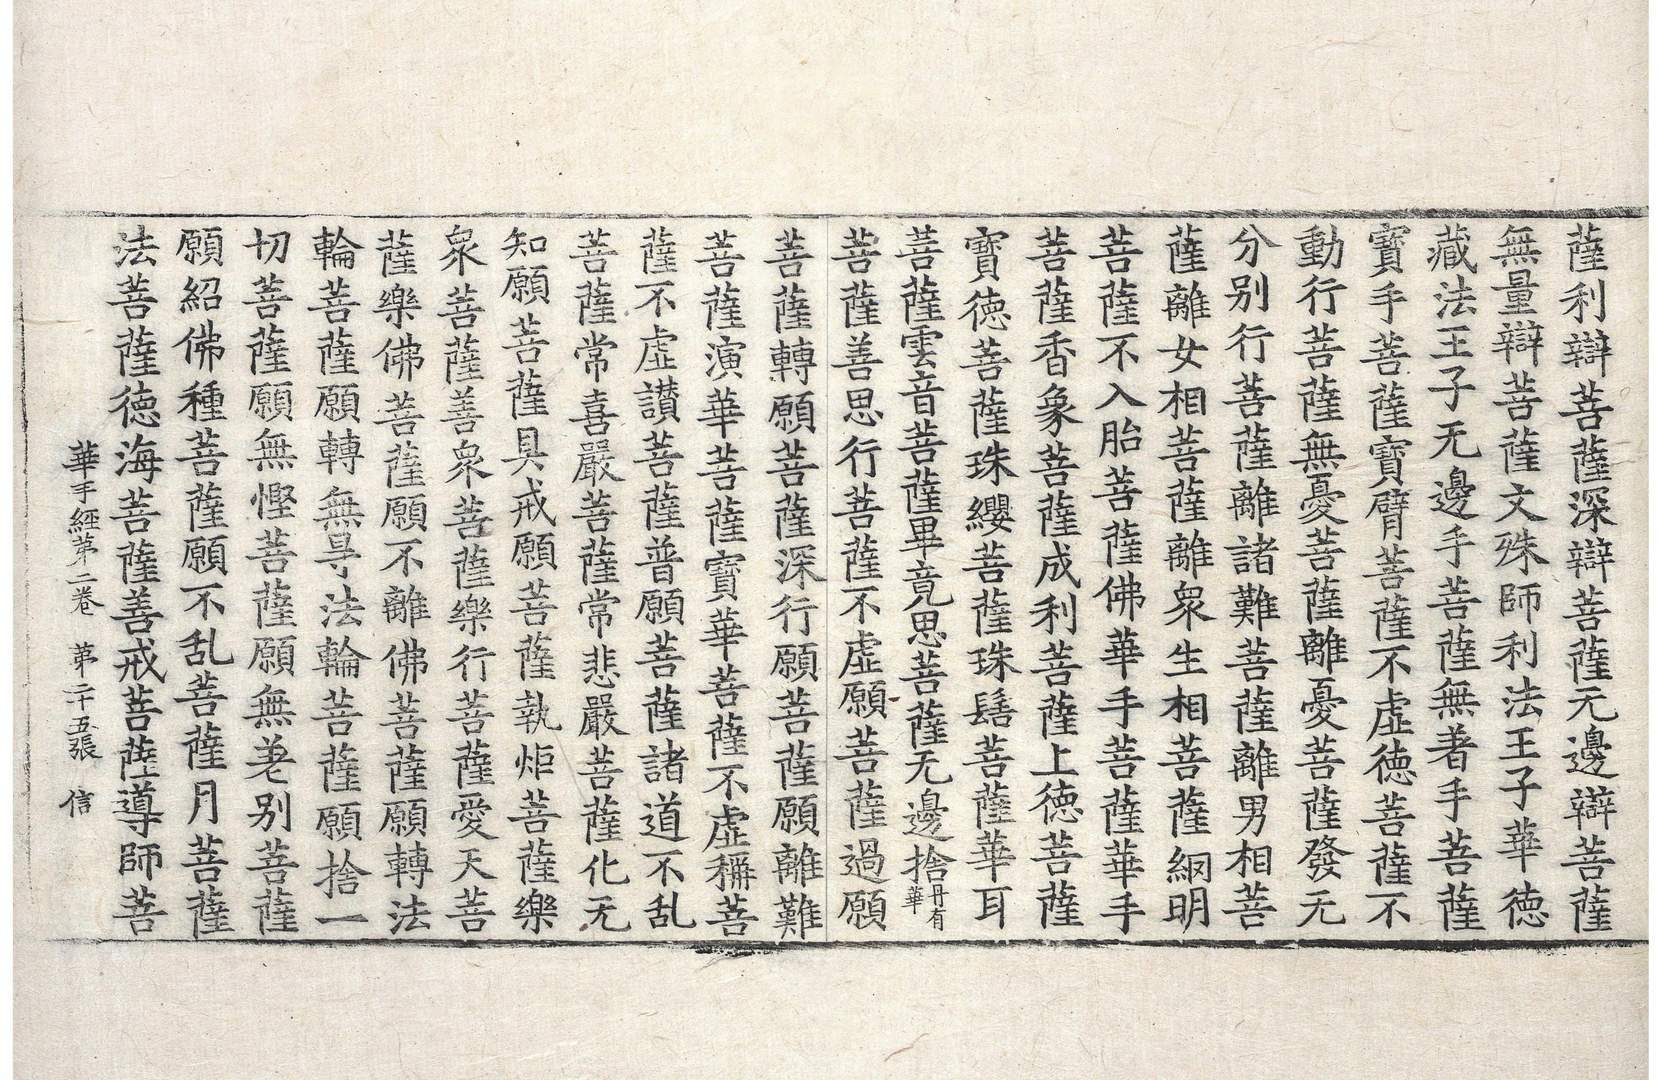 薩利辯菩薩深辯菩薩无邊辯菩薩
無量辯菩薩文殊師利法王子華德
藏法王子无邊手菩薩無著手菩薩
寶手菩薩寶臂菩薩不虛德菩薩不
動行菩薩無憂菩薩離憂菩薩發无
分別行菩薩離諸難菩薩離男相菩
薩離女相菩薩離衆生相菩薩網明
菩薩不入胎菩薩佛華手菩薩華手
菩薩香象菩薩成利菩薩上德菩薩
寶德菩薩珠纓菩薩珠髻菩薩華耳
菩薩雲音菩薩畢竟思菩薩无邊捨丹有華
菩薩善思行菩薩不虛願菩薩過願
菩薩轉願菩薩深行願菩薩願離難
菩薩演華菩薩寶華菩薩不虛稱菩
薩不虛讃菩薩普願菩薩諸道不乱
菩薩常喜嚴菩薩常悲嚴菩薩化无
知願菩薩具戒願菩薩執炬菩薩樂
衆菩薩善衆菩薩樂行菩薩愛天菩
薩樂佛菩薩願不離佛菩薩願轉法
輪菩薩願轉無㝵法輪菩薩願捨一
切菩薩願無慳菩薩願無差別菩薩
願紹佛種菩薩願不乱菩薩月菩薩
法菩薩德海菩薩善戒菩薩導師菩
華手經第二卷　第二十五張　信